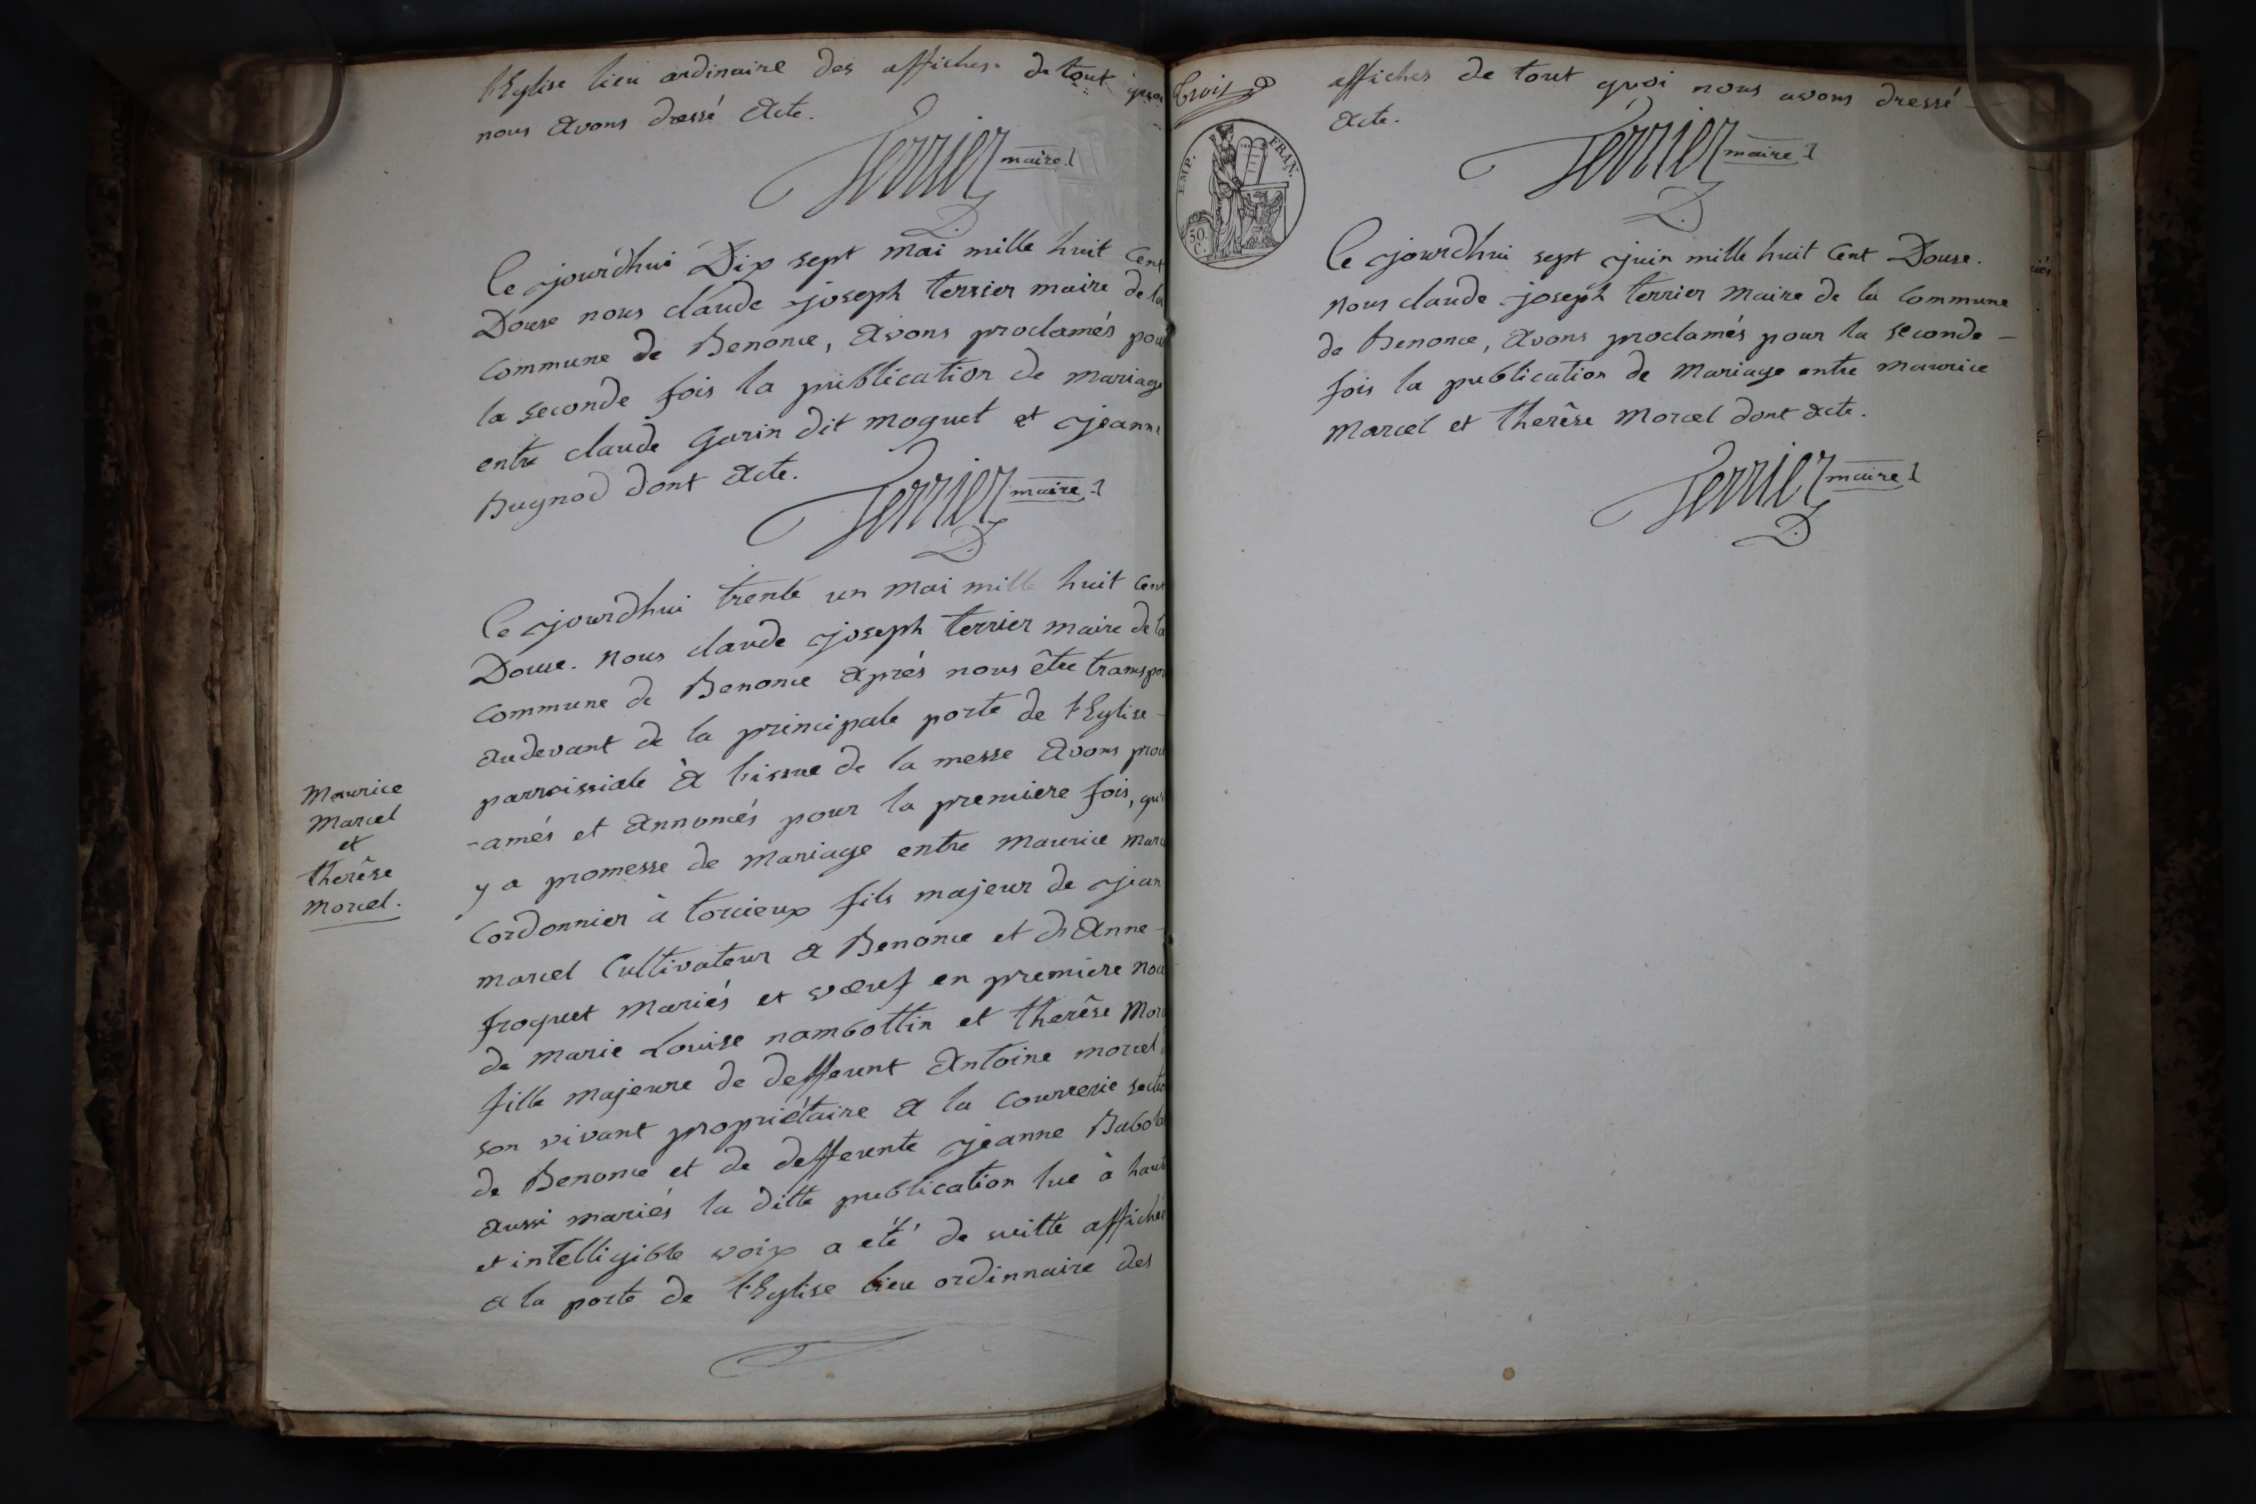 l'Eglise lieu ordinaire des affiches. de tout quoi
nous avons dressé acte.
Terrier maire
Ce jourd'hui Dix sept mai mille huit cent
Douse nous claude joseph terrier maire de la
commune de Benonce, avons proclamés pour
la seconde fois la publication de mariage
entre claude Garin dit moquet et jeanne
Bugnod dont acte.
Terrier maire
Ce jourdhui trente un mai mille huit cent
Douse. nous claude joseph terrier maire de la
commune de Benonce après nous être transpor
audevant de la principale porte de l'Eglise
parroissiale à l'issue de la messe avons procl
-amés et annoncés pour la premiere fois, qu'il
Maurice
Marcel
et
therêse
morcel.
y a promesse de mariage entre maurice marcel
cordonnier à torcieux fils majeur de jean
marcel Cultivateur a Benonce et d'anne
froquet mariés et vœuf en premiere noce
de marie Louise nambottin et therêse Morcel
fille majeure de deffeunt antoine morcel
son vivant propriétaire a la courrerie section
de Benonce et de deffeunte jeanne
aussi mariés la ditte publication lue à haute
et intelligible voix a été de suitte affichée
a la porte de l'Eglise lieu ordinnaire des
trois
EMP. FRAN.
50 C.
affiches de tout quoi nous avons dressé
acte.
Terrier maire
Ce jourdhui sept juin mille huit cent Douse.
nous claude joseph terrier maire de la commune
de Benonce, avons proclamés pour la seconde
fois la publication de mariage entre maurice
Marcel et therêse Morcel dont acte.
Terrier maire